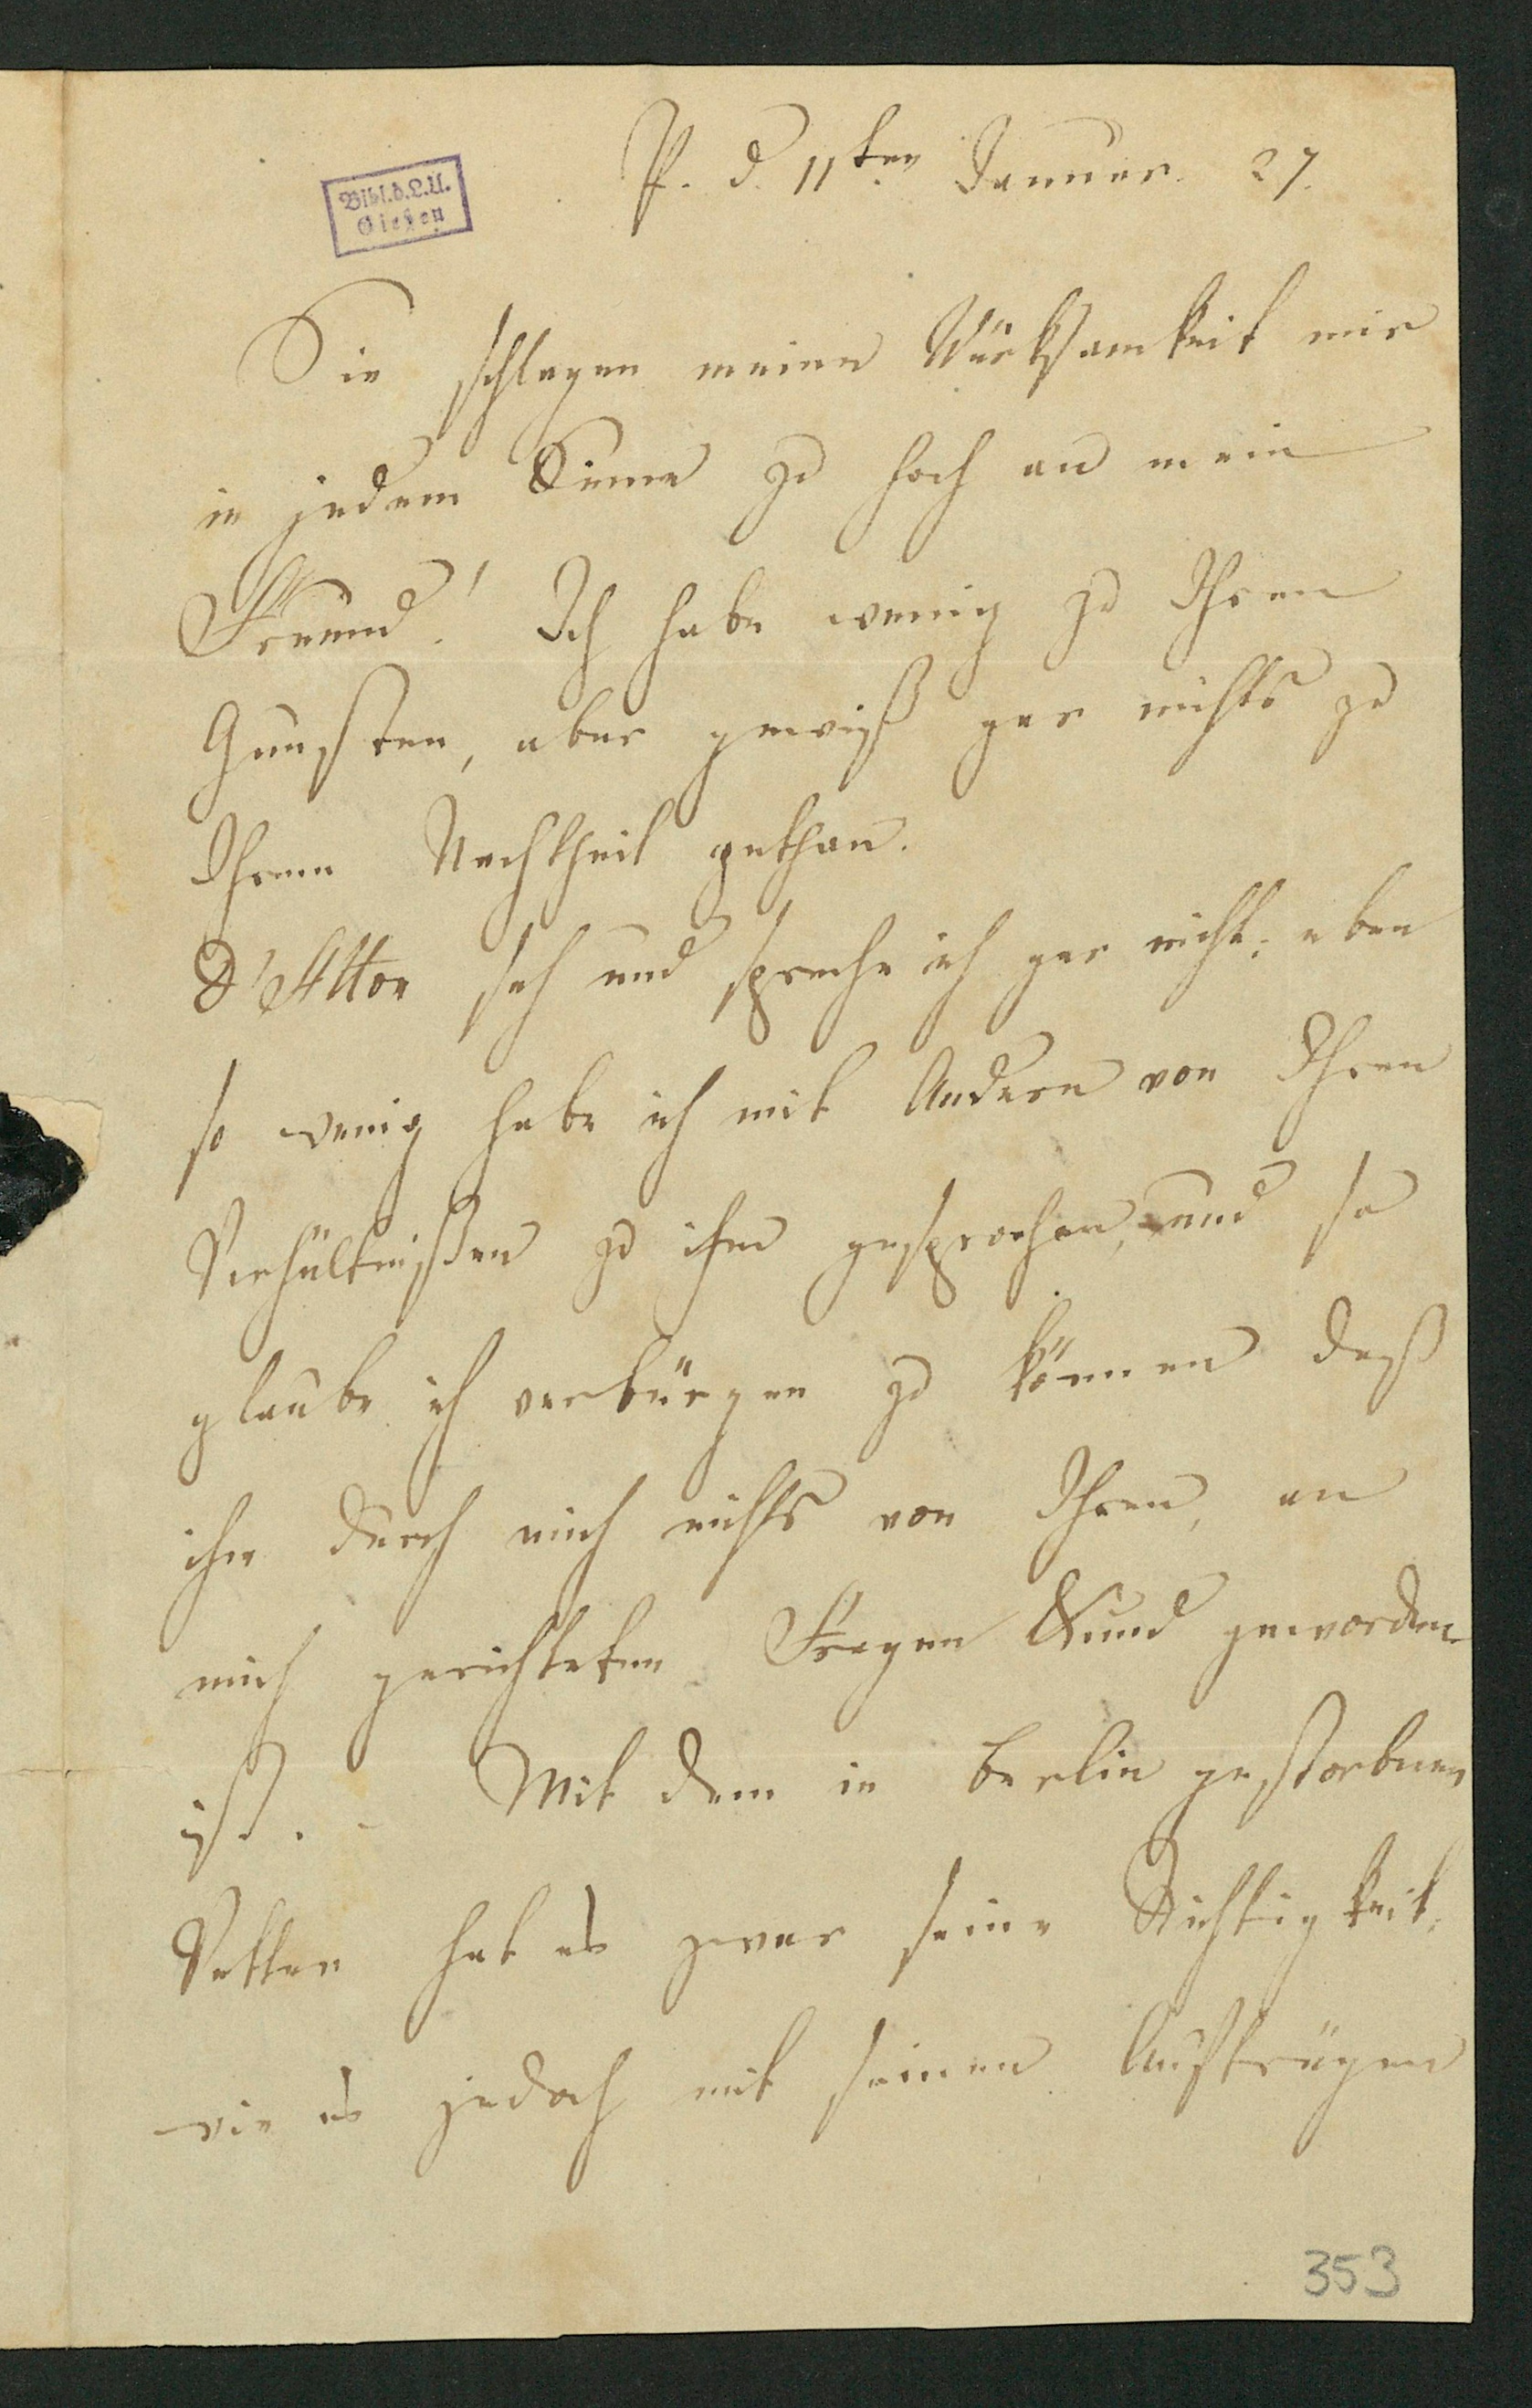 P. d. 11ten Januar 27.
Bibl.d.L.U.
Gießen
Sie schlagen meine Würksamkeit mir
in jedem Sinne zu hoch an mein
Freund! Ich habe wenig zu Ihren
Gunsten, aber gewiß gar nichts zu
Ihrem Nachtheil gethan.
D'Alton seh und spreche ich gar nicht; eben
so wenig habe ich mit Andern von Ihren
Verhältnißen zu ihm gesprochen, und so
glaube ich verbürgen zu können daß
ihm durch mich nichts von Ihren, an
mich gerichteten Fragen Kund geworden
ist. - Mit dem in Berlin gestorbnen
Vetter hat es zwar seine Richtigkeit,
wie es jedoch mit seinen Aufträgen
353